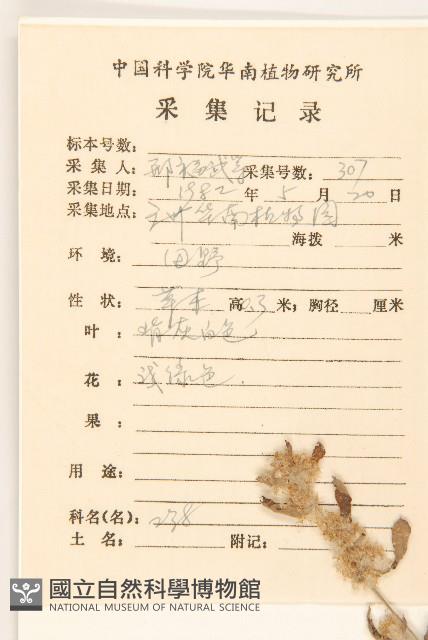 中国科学院华南植物研究所
采集记录
标本号数：
采集人：邢福武等 采集号数：307
采集日期：1982年5月20日
采集地点：广州华南植物园
海拨 米
环境：田野
性状：草本 高0.3米；胸径 厘米
叶：背灰白色
花：浅绿色.
果：
用途：
科名(名)：238
土名： 附记：
國立自然科學博物館
NATIONAL MUSEUM OF NATURAL SCIENCE